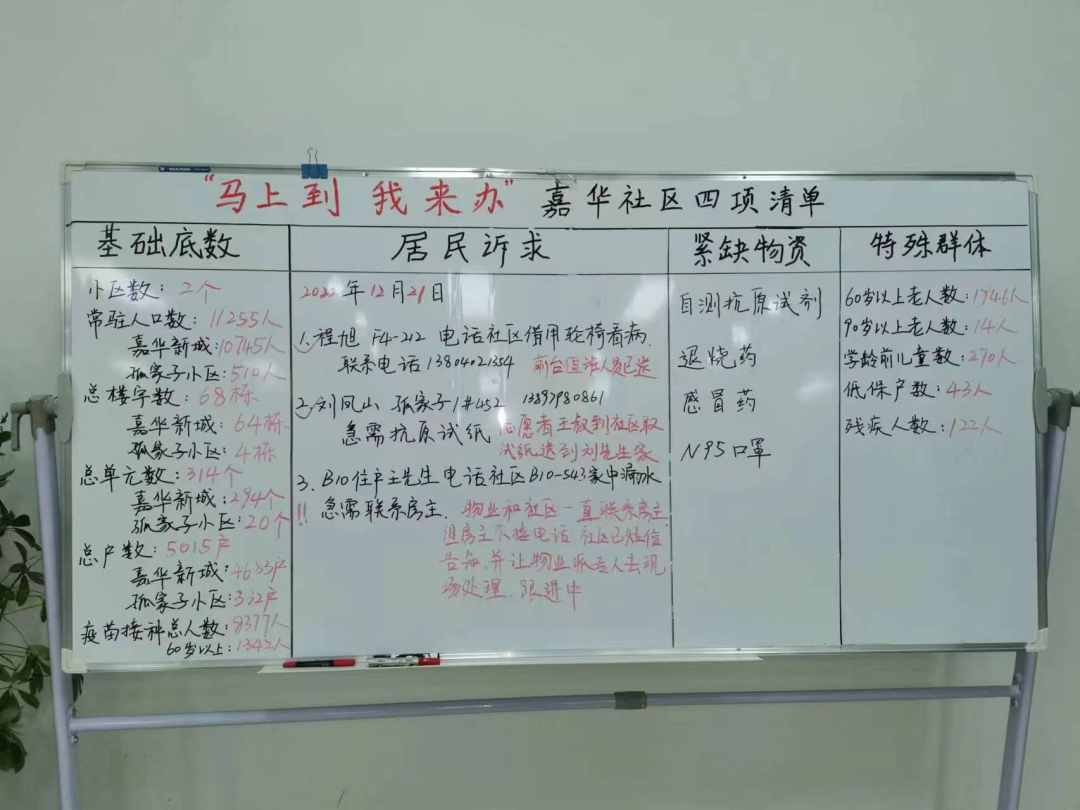 “马上到 我来办” 嘉华社区四项清单
基础底数
小区数：2个
常驻人口数：11255人
嘉华新城：10745人
孤家子小区：510人
总楼宇数：68栋
嘉华新城：64栋
孤家子小区：4栋
总单元数：314个
嘉华新城：294个
孤家子小区：20个
总户数：5015户
嘉华新城：4683户
孤家子小区：332户
疫苗接种总人数：8377人
60岁以上：1342人
居民诉求
2022年12月21日
1、程旭 F4-212 电话社区借用轮椅看病.
联系电话13804021354 前台值班人员已送
2、刘凤山 孤家子1#452 13897980861
急需抗原试纸 志愿者王叔到社区取
试纸送到刘先生家
3、B10住户王先生电话社区B10-543家中漏水
!! 急需联系房主. 物业和社区一直联系房主,
但房主不接电话.社区已短信
告知,并让物业派专人去现
场处理.跟进中
紧缺物资
自测抗原试剂
退烧药
感冒药
N95口罩
特殊群体
60岁以上老人数：1746人
90岁以上老人数：14人
学龄前儿童数：270人
低保户数：43人
残疾人数：122人